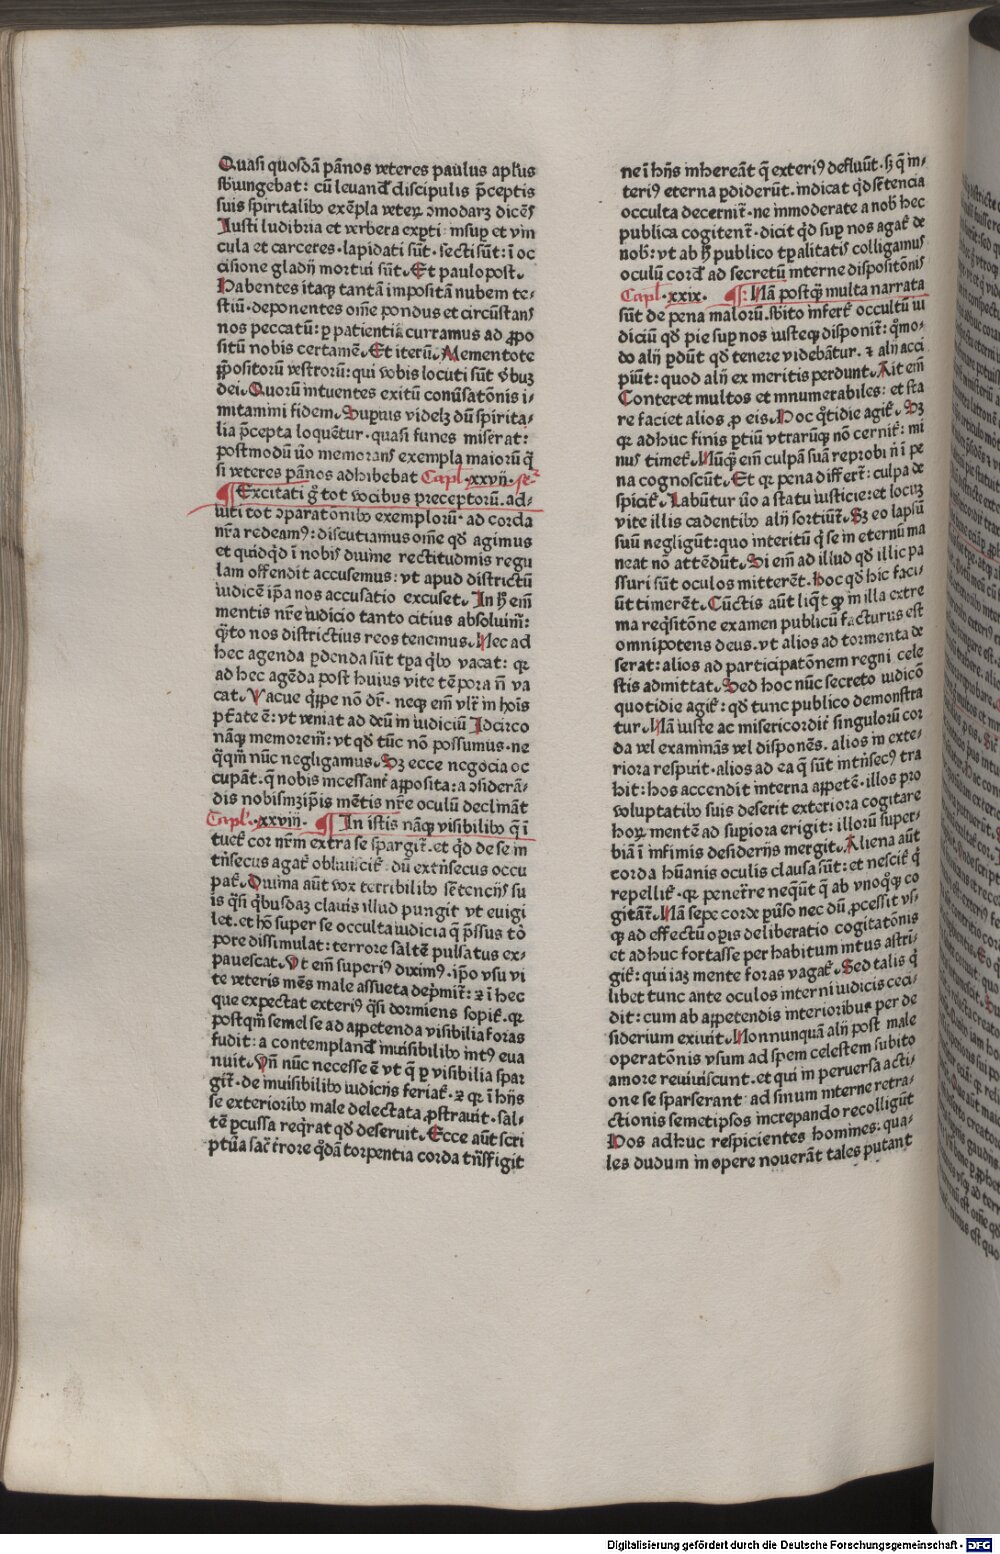 Quasi quosdā pānos veteres paulus aplus
sbiungebat: cū leuandꝭ discipulis p̄ceptis
suis spiritalibꝰ exēpla veteꝝ ↄmodarꝫ dicēs
Iusti ludibria et verbera exꝑti· insuꝑ et vin
cula et carceres· lapidati sūt· secti sūt: ī oc
cisione gladij mortui sūt. Et paulo post.
Habentes itaqꝫ tantā impositā nubem te-
stiū· deponentes oīne pondus et circūstans
nos peccatū: ꝑ patientiā curramus ad ꝓpo
sitū nobis certamē. Et iterū. Mementote
p̄positorū vestrorū: qui vobis locuti sūt v̄buꝫ
dei. Quorū intuentes exitū conūsatōnis i-
mitamini fidem. Supius videlꝫ dū spirita-
lia p̄cepta loquētur· quasi funes miserat:
postmodū ūo memorans exempla maiorū q̄
si veteres pānos adhibebat Capl· xxvij·
¶ Excitati gͦ tot vocibus preceptorū. ad-
iuti tot ↄparatōnibꝰ exemplorū· ad corda
nr̄a redeamꝰ: discutiamus oīne qd̄ agimus
et quidqd̄ ī nobis diuine rectitudinis regu
lam offendit accusemus: vt apud districtū
iudicē ip̄a nos accusatio excuset. In hͦ em̄
mentis nr̄e iudicio tanto citius absoluim̄:
q̄to nos districtius reos tenemus. Nec ad
hec agenda ꝑdenda sūt tꝑa qibꝰ vacat: qꝛ
ad hec agēda post huius vite tēpora n̄ va
cat. Vacue qipe nō dr̄· neqꝫ em̄ vlt̄ in hoīs
ptāte ē: vt veniat ad deū in iudiciū Idcirco
nāqꝫ memorem̄: vt qd̄ tūc nō possumus· ne
q̄qm̄ nūc negligamus. Sꝫ ecce negocia oc
cupāt· q̄ nobis incessant̄ apposita: a ↄsiderā-
dis nobismꝫip̄is mētis nr̄e oculū declināt
Capl· xxviij· ¶ In istis nāqꝫ visibilibꝰ q̄ ī
tuet̄ cor nr̄m extra se spargit̄· et qd̄ de se in
tn̄secus agat̄ obliuiscit̄· dū extn̄secus occu
pat̄. Diuina aūt vox terribilibꝰ sētencijs su
is qisi qibusdaꝫ clauis illud pungit vt euigi
let· et hō super se occulta iudicia q̄ p̄ssus tō
pore dissimulat: terrore saltē pulsatus ex-
pauescat. Vt em̄ superiꝰ diximꝰ· ip̄o vsu vi
te veteris mēs male assueta dep̄mit̄: ⁊ ī hec
que expectat exteriꝰ qisi dormiens sopit̄· qꝛ
postqm̄ semel se ad appetenda visibilia foras
fudit: a contemplandꝭ inuisibilibꝰ intꝰ eua
nuit. Vn̄ nūc necesse ē vt q̄ ꝑ visibilia spar
git̄· de inuisibilibꝰ iudicijs feriat̄· ⁊ qꝛ ī hijs
se exterioribꝰ male delectata ꝓstrauit· sal-
tē ꝑcussa reqirat qd̄ deseruit. Ecce aūt scri
ptūa sac̄ t̄rore qd̄ā torpentia corda tn̄sfigit
ne ī hijs inhereāt q̄ exteriꝰ defluūt· sꝫ q̄ in-
teriꝰ eterna ꝑdiderūt· indicat qd̄ sētencia
occulta decernit̄· ne inmoderate a nob̄ hec
publica cogitent̄· dicit qd̄ suꝑ nos agat̄ de
nob̄: vt ab hͦ publico tꝑalitatis colligamus
oculū cordꝭ ad secretū interne dispositōnis
Capl· xxix· ¶ Nā postq̄ multa narrata
sūt de pena malorū· sbito infert̄ occultū iu
diciū qd̄ pie suꝑ nos iusteqꝫ disponit̄: qͦmo-
do alij ꝑdūt qd̄ tenere videbātur· ⁊ alij acci
piūt: quod alij ex meritis perdunt. Ait em̄
Conteret multos et innumerabiles: et sta
re faciet alios ꝓ eis. Hoc qͦtidie agit̄. Sꝫ
qꝛ adhuc finis ꝑtiū vtrarūqꝫ nō cernit̄: mi
nus timet̄. Nūqꝫ em̄ culpā suā reprobi n̄ ī pe
na cognoscūt. Et qꝛ pena differt̄: culpa de
spicit̄. Labūtur ūo a statu iusticie: et locuꝫ
vite illis cadentibꝰ alij sortiūt̄. Sꝫ eo lapsū
suū negligūt: quo interitū q̄ se in eternū ma
neat nō attēdūt. Si em̄ ad illud qd̄ illic pa
ssuri sūt oculos mitterēt· hoc qd̄ hic faci-
ūt timerēt. Cūctis aūt liqet qꝫ in illa extre
ma reqisitōne examen publicū facturus est
omnipotens deus· vt alios ad tormenta de
serat: alios ad participatōnem regni cele
stis admittat. Sed hoc nūc secreto iudicō
quotidie agit̄: qd̄ tunc publico demonstra
tur. Nā iuste ac misericordit̄ singulorū cor
da vel examināns vel disponēs· alios in exte-
riora respuit· alios ad ea q̄ sūt intn̄secꝰ tra
hit: hos accendit interna appetē· illos pro
voluptatibꝰ suis deserit exteriora cogitare
horꝫ mentē ad supiora erigit: illorū super-
biā ī infimis desiderijs mergit. Aliena aūt
corda hūanis oculis clausa sūt: et nescit̄ q̄
repellit̄· qꝛ penet̄re neqūt q̄ ab vnoqͦqꝫ co
gitāt̄. Nā sepe corde puso nec dū ꝓcessit vs-
qꝫ ad effectū oꝑis deliberatio cogitatōnis
et adhuc fortasse per habitum intus astrī-
git̄: qui iaꝫ mente foras vagat̄. Sed talis q̄
libet tunc ante oculos interni iudicis ceci-
dit: cum ab appetendis interioribus per de
siderium exiuit. Nonnunquā alij post male
operatōnis vsum ad spem celestem subito
amore reuiuiscunt· et qui in peruersa acti-
one se sparserant· ad sinum interne retra-
ctionis semetipsos increpando recolligūt
Hos adhuc respicientes homines: qua-
les dudum in opere nouerāt tales putant
Digitalisierung gefördert durch die Deutsche Forschungsgemeinschaft - DFG